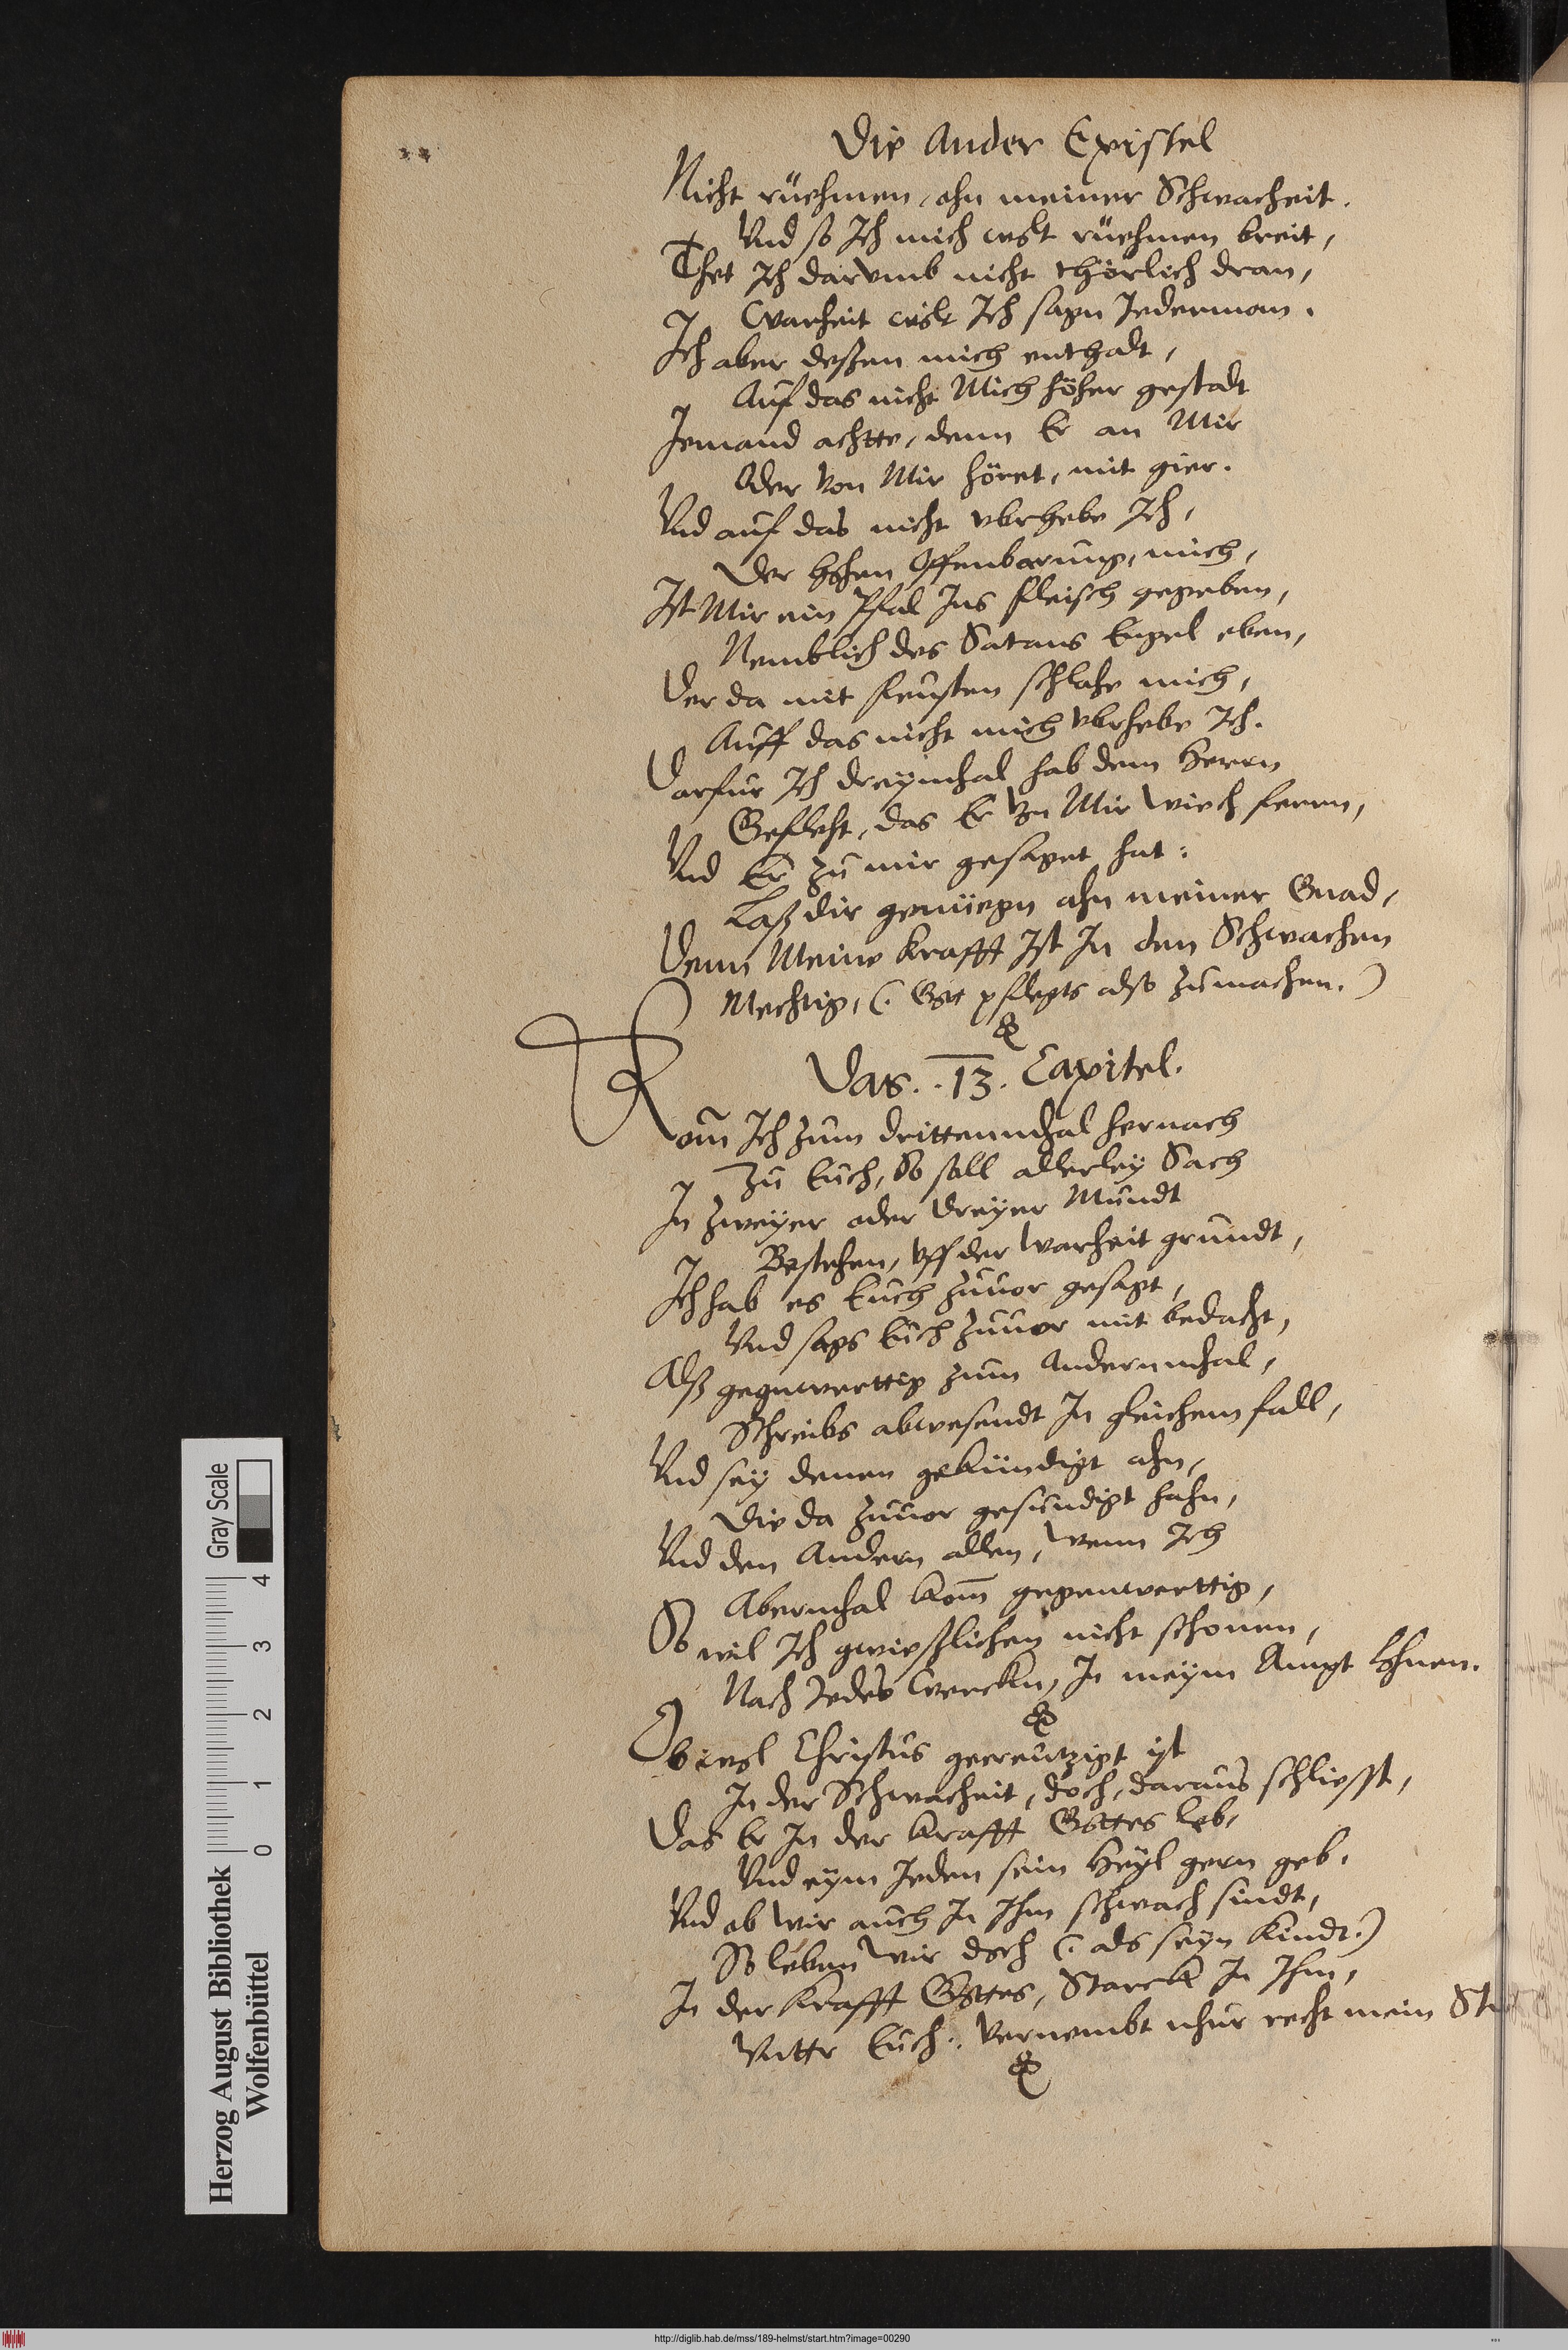 Die Ander Epistel
Nicht rüehmen, ohn meiner Schwacheit.
Vnd so Ich mich wolt rüehmen breit,
Thet Ich darvmb nicht thörlich dran,
Warheit wolt Ich sagn Jederman.
Ich aber deßen mich enthalt,
Auf das nicht Mich höher gestalt
Jemand achtte, denn Er an Mir
Oder von Mir höret, mit gier.
Vnd auf das nicht vbrhebe Ich,
Der hohen Offenbarung, mich,
Ist Mir ein Pfal Ins fleisch gegeben,
Nemblich des Satans Engel eben,
Der da mit feusten schlahe mich,
Auff das nicht mich vbrhebe Ich.
Darfur Ich dreymhal hab dem Herrn
Gefleht, das Er von Mir wiech ferrn,
Vnd Er zu mir gesaget hat:
Laß dir genüegn ahn meiner Gnad,
Denn Meine krafft Ist In den Schwachen
Mechtig, (: Gott pflegts also zumachen.)
Das. 13. Capitel.
Kom̄ Ich zum drittenmhal hernach
Zu Euch, So soll allerley Sach
In zweyer oder dreyer Mundt
Bestehen, vff der warheit grundt,
Ich hab es Euch zuuor gesagt,
Vnd sags Euch zuuor mit bedacht,
Alß gegnwerttig zum Andernmhal,
Schreibs abwesendt In gleichem fall,
Vnd sey denen gekündigt ahn,
Die da zuuor gesundigt hahn,
Vnd den Andern allen, wenn Ich
Abermhal kom̄ gegenwerttig,
So wil Ich gwießlichen nicht schonen,
Nach Jedes werckn, In meym Ampt lohnen.
Ob wol Christus gecreutzigt ist
In der Schwacheit, doch, daraus schliesst,
Das Er In der krafft Gottes leb,
Vnd eym Jeden sein Heyl gern geb.
Vnd ob wir auch In Ihm schwach sindt,
So leben wir doch (: als seyn kindt:)
In der krafft Gottes, Starck In Ihm,
Vnttr Euch: Vernembt nhur recht mein
Herzog August Bibliothek
Wolfenbüttel
Gray Scale
0 1 2 3 4
http://diglib.hab.de/mss/189-helmst/start.htm?image=00290